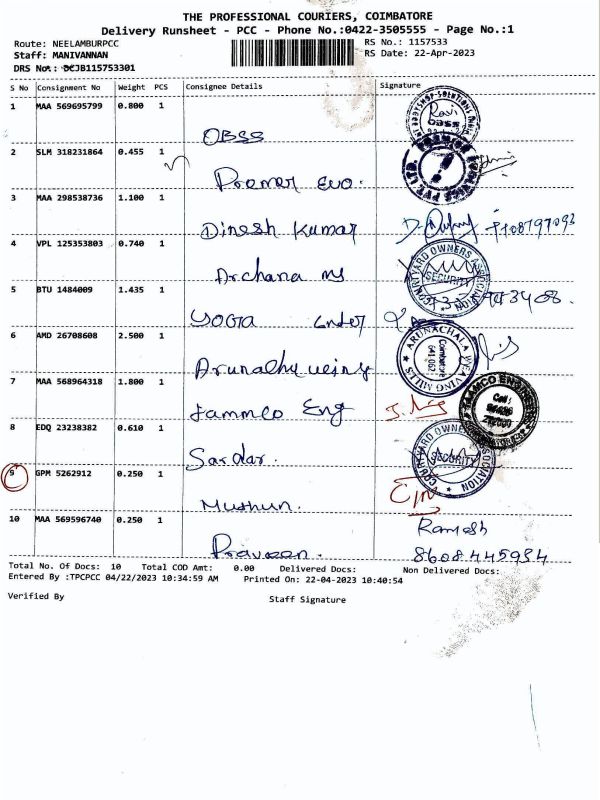 THE PROFESSIONAL COURIERS, COIMBATORE
Delivery Runsheet - PCC - Phone No.:0422-3505555 - Page No.:1
Route: NEELAMBURPCC RS No.: 1157533
Staff: MANIVANNAN RS Date: 22-Apr-2023
DRS No.: DCJB115753301
S No Consignment No Weight PCS Consignee Details Signature
1 MAA 569695799 0.800 1 OBSS Ravi OBSS
2 SLM 318231864 0.455 1 Premer Evo.
3 MAA 298538736 1.100 1 Dinesh Kumar
4 VPL 125353803 0.740 1 Archana ms COURTYARD OWNERS ASSOCIATION SECURITY
5 BTU 1484009 1.435 1 yoga
6 AMD 26708608 2.500 1 ARUNACHALA WEAVING MILLS Coimbatore 641 062
7 MAA 568964318 1.800 1 Jammco Eng
8 EDQ 23238382 0.610 1 Sardar. COURTYARD OWNERS ASSOCIATION SECURITY
9 GPM 5262912 0.250 1
10 MAA 569596740 0.250 1 Praveen. Ramesh 8608445934
Total No. Of Docs: 10 Total COD Amt: 0.00 Delivered Docs: Non Delivered Docs:
Entered By :TPCPCC 04/22/2023 10:34:59 AM Printed On: 22-04-2023 10:40:54
Verified By Staff Signature